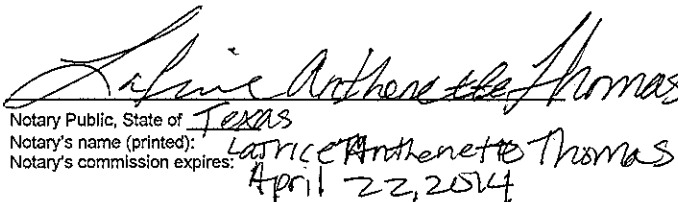 Latrice Anthenette Thomas
Notary Public, State of Texas
Notary's name (printed): Latrice Anthenette Thomas
Notary's commission expires: April 22, 2014